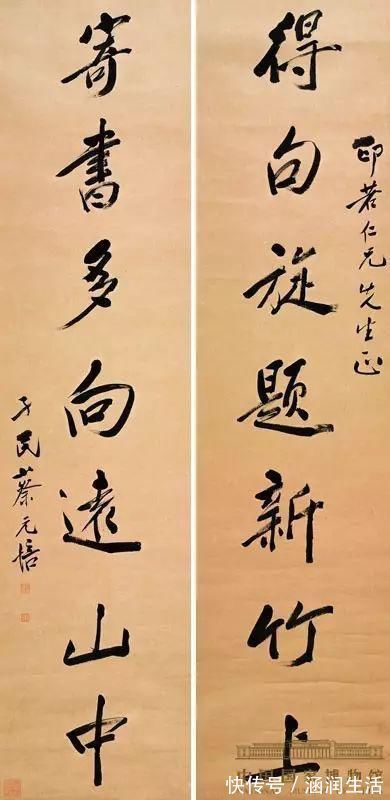 印若仁兄先生正
得句旋題新竹上
寄書多向遠山中
孑民蔡元培
快传号/涵润生活